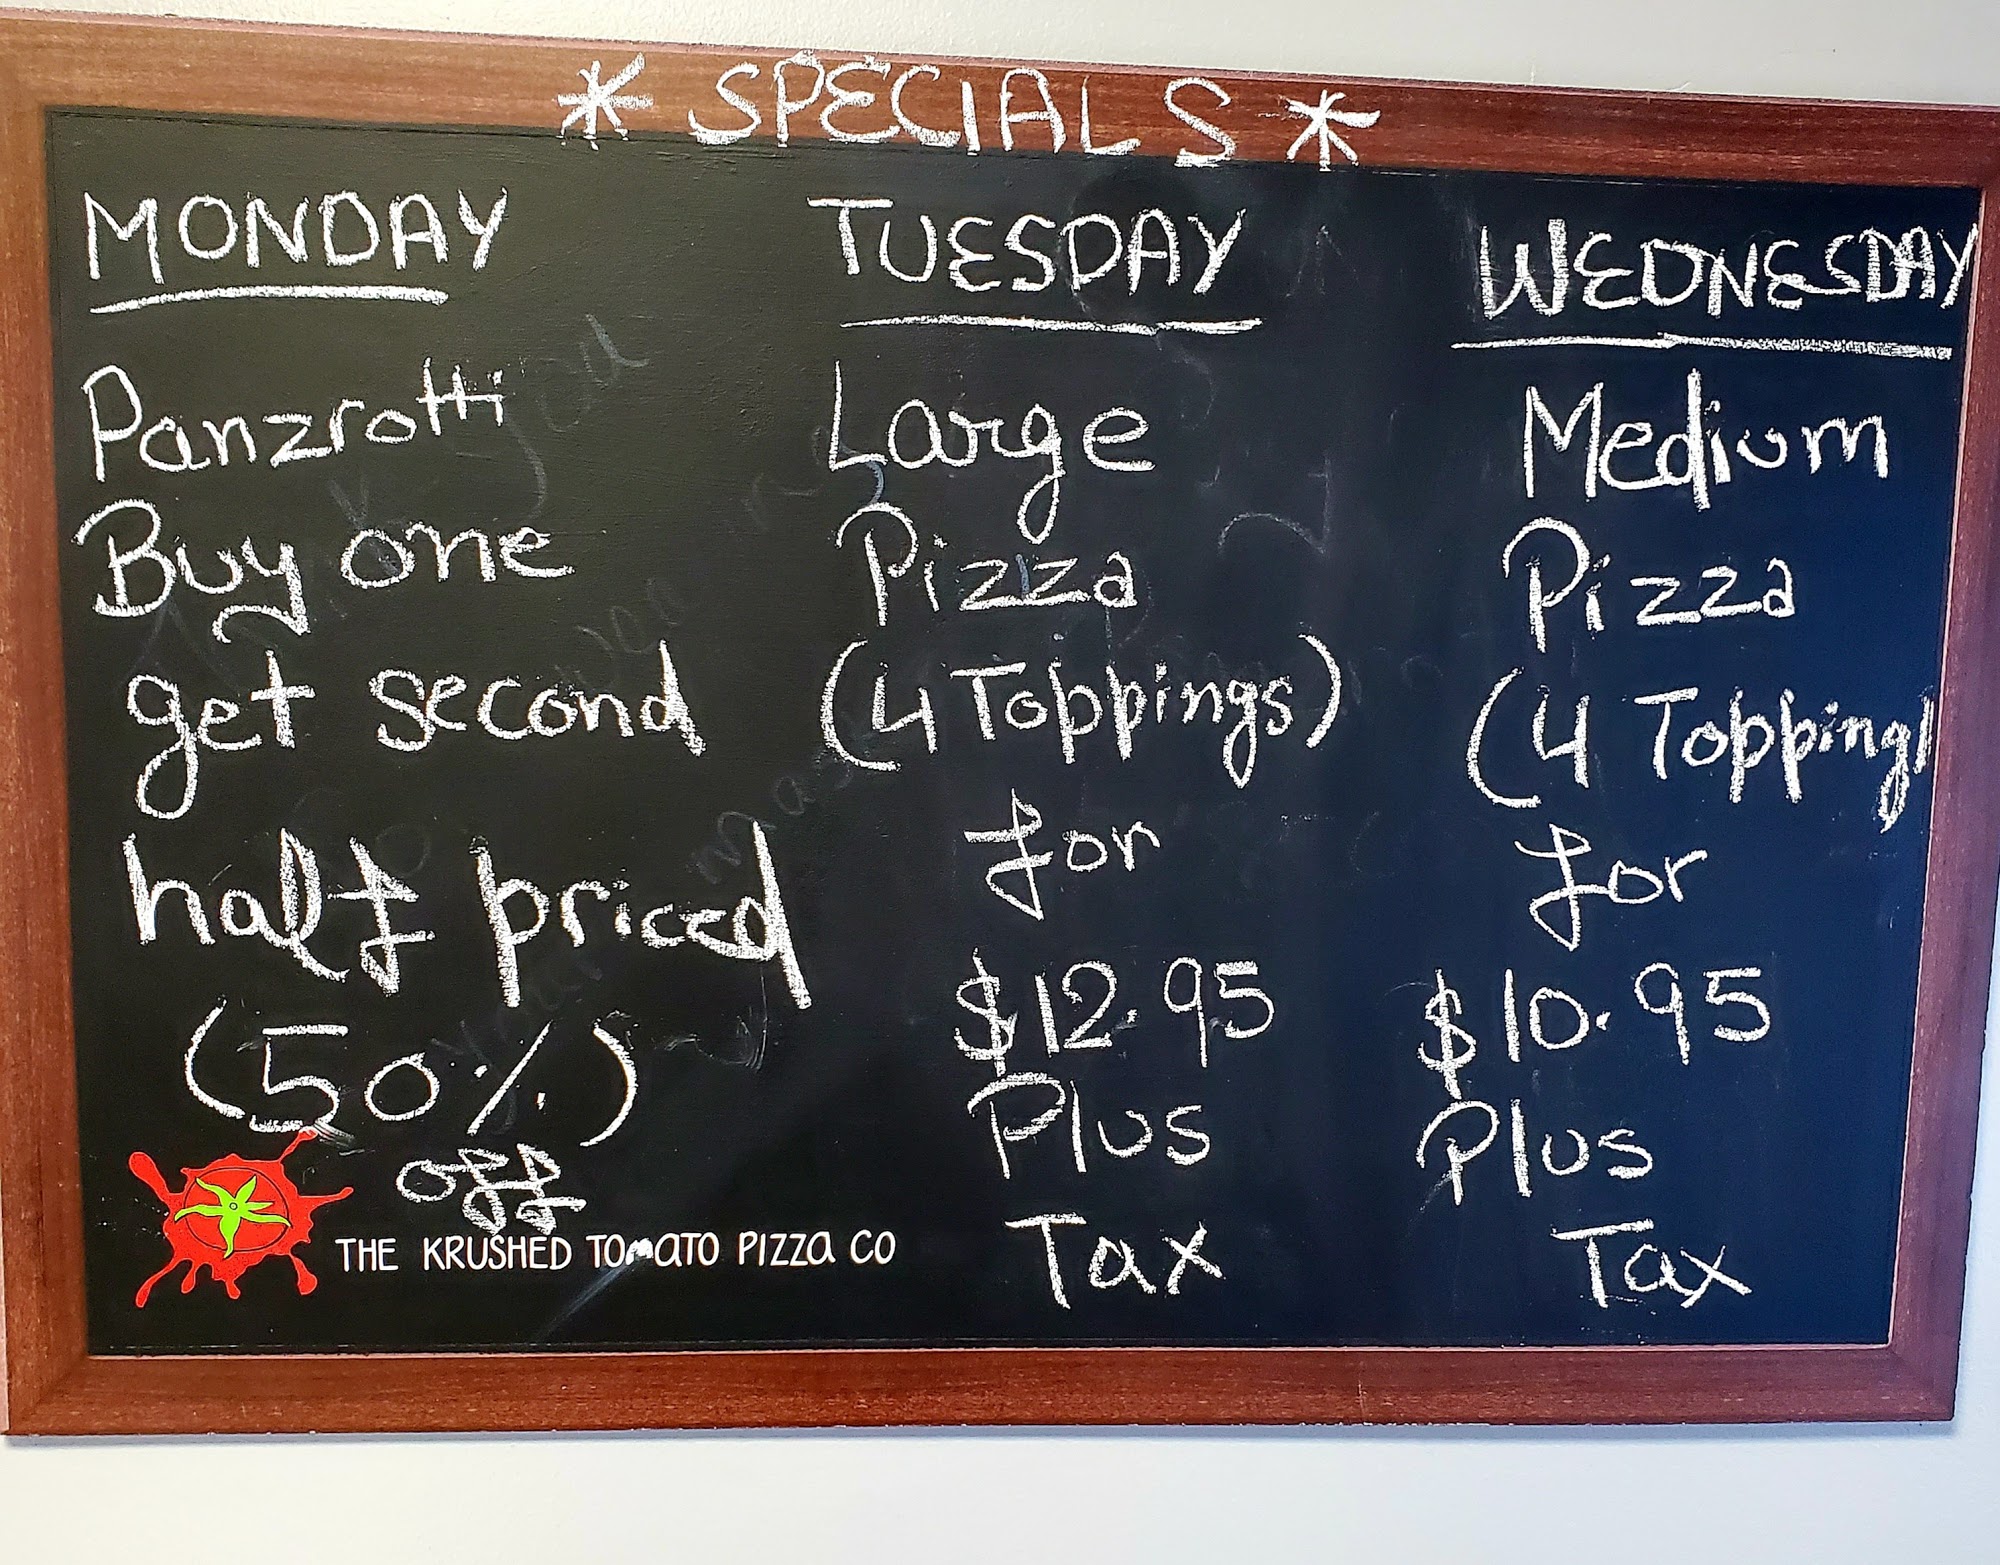 * SPECIALS *
MONDAY
Panzrotti
Buy one
get second
half priced
(50%)
off
TUESDAY
Large
Pizza
(4 Toppings)
for
$12.95
Plus
Tax
WEDNESDAY
Medium
Pizza
(4 Topping)
for
$10.95
Plus
Tax
THE KRUSHED TOMATO PIZZA CO